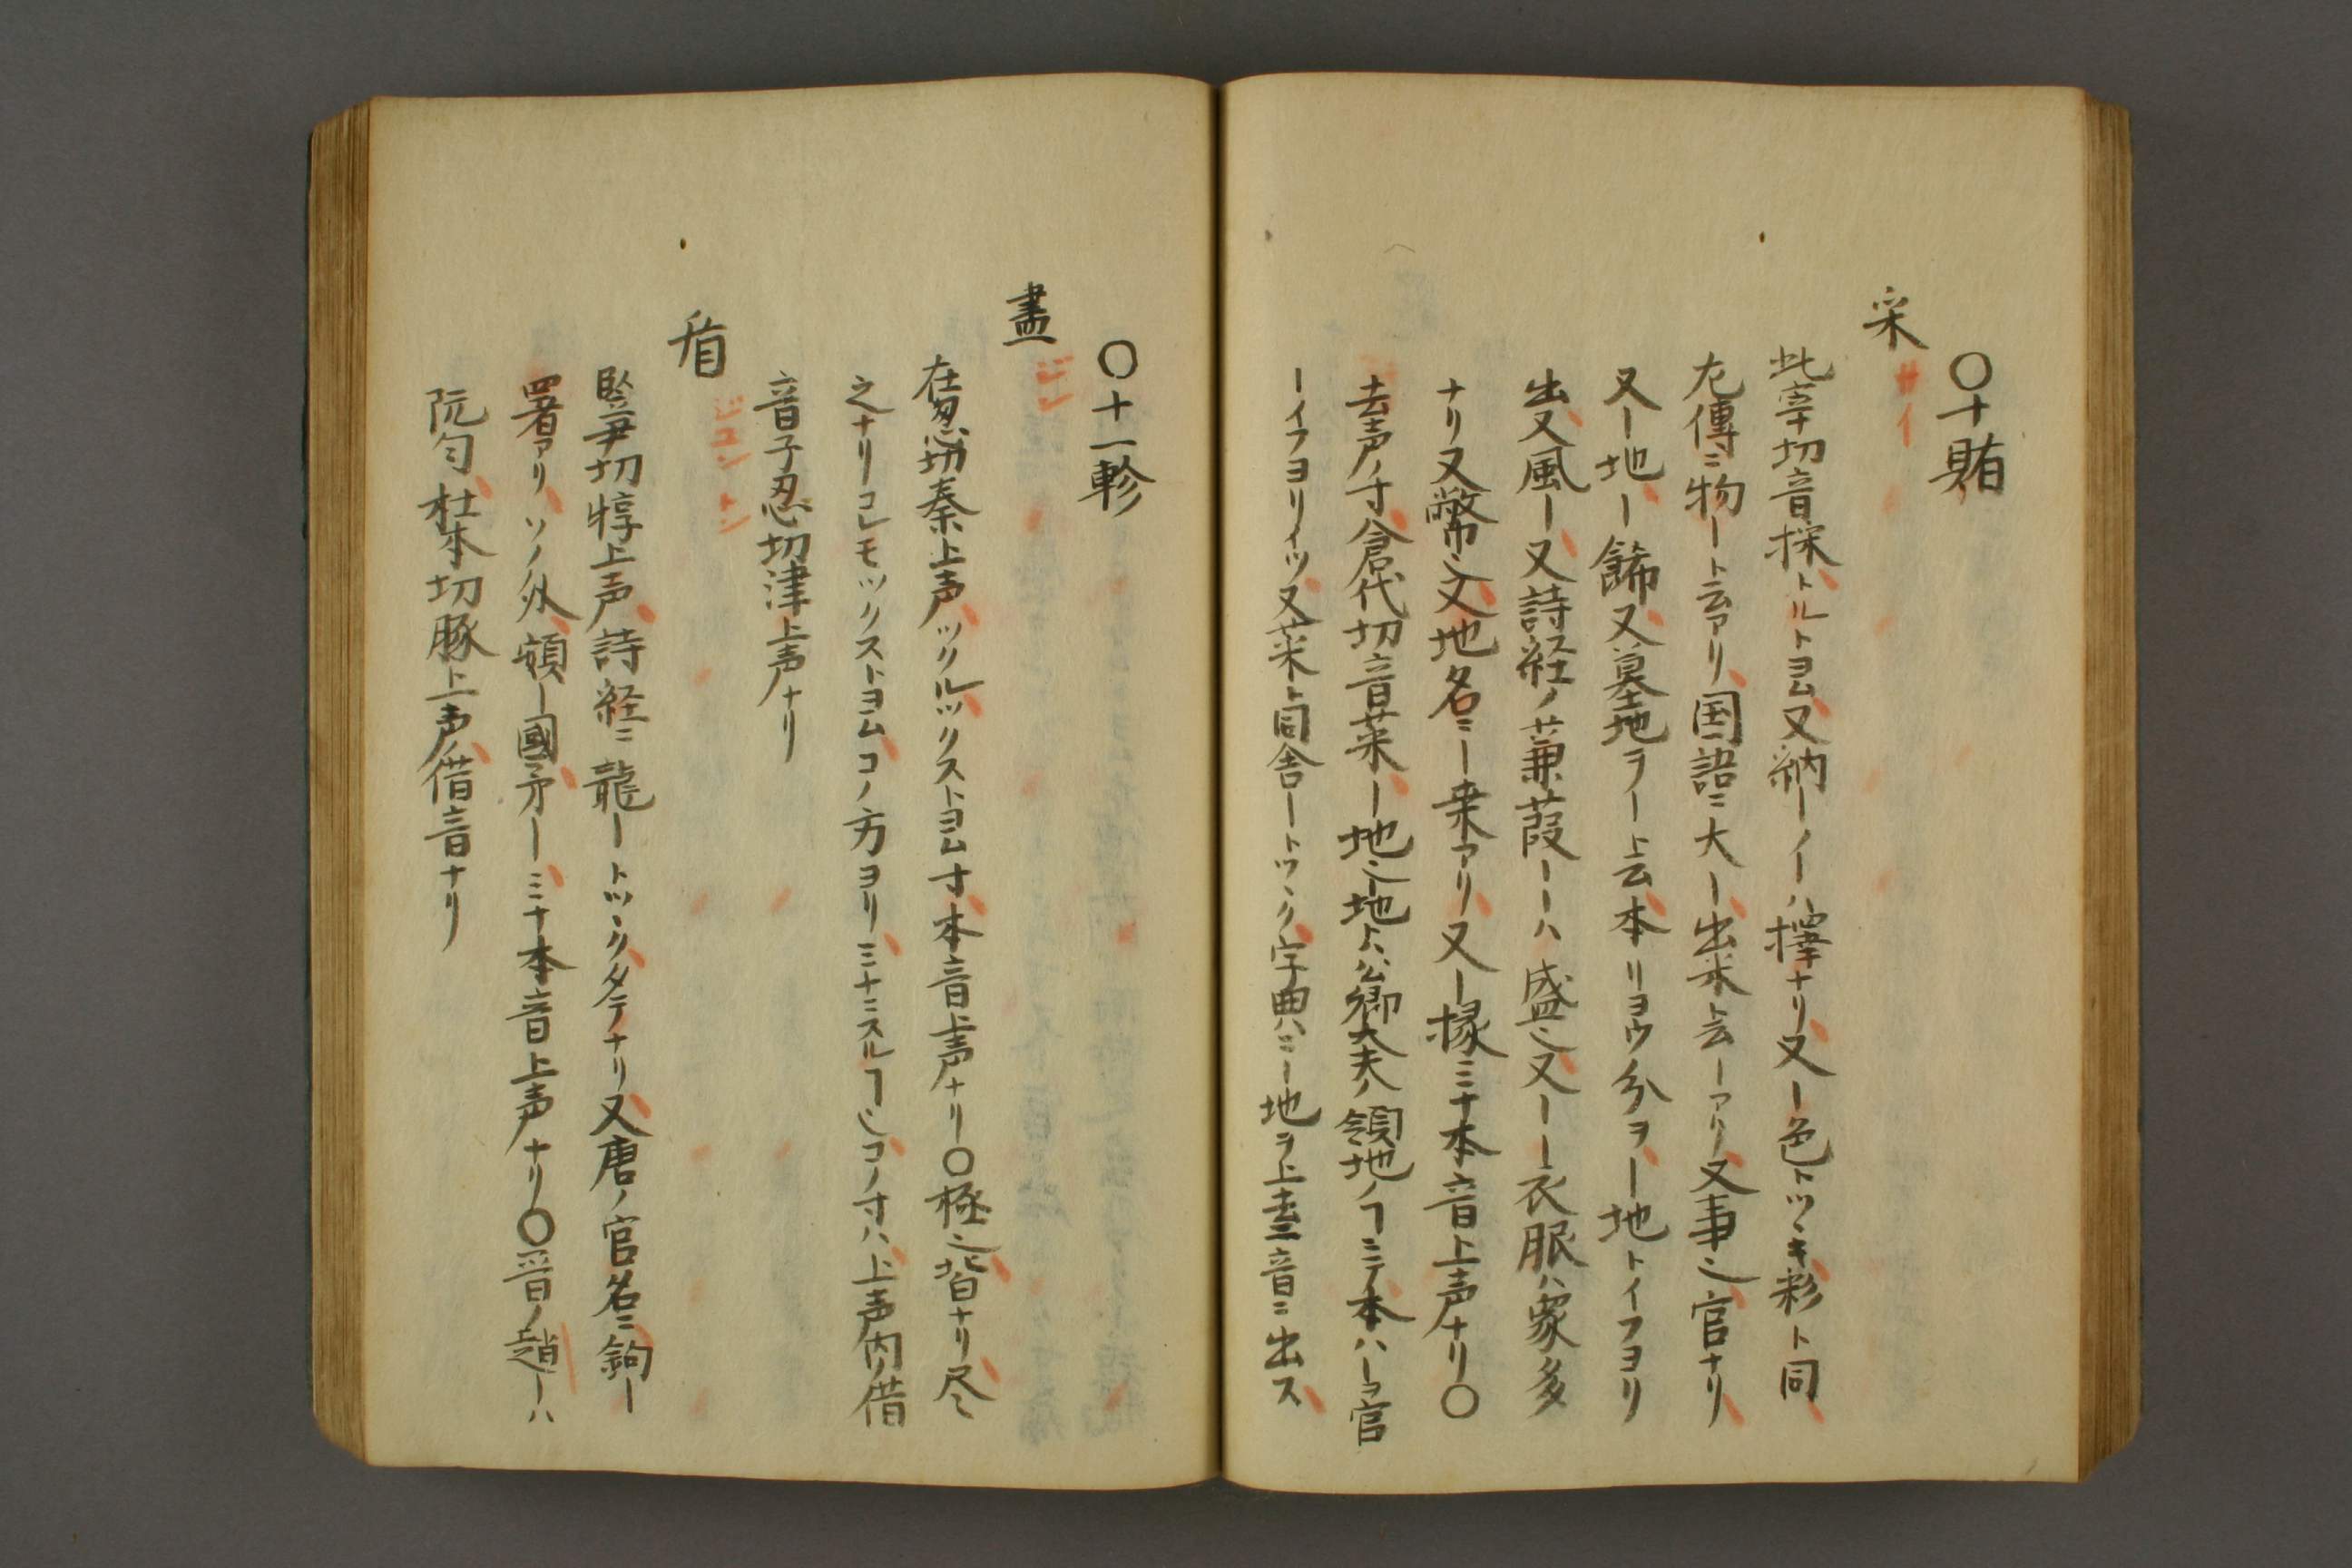 〇十賄
采サイ
此宰切音採トルトヨム又納ーノーハ擇ナリ又ー色トツヽキ彩ト同
左傳ニ物ート云アリ国語ニ大ー出采ト云ーアリ又事也官ナリ
又ー地ー餙又墓地ヲート云本リヨウ分ヲー地トイフヨリ
出又風ー又詩経ノ蒹葭ーーハ盛也又ーー衣服ハ家多
ナリ又幣也又地名ニー桒アリ又ー掾ミナ本音上声ナリ〇
去声ノ寸倉代切音菜ー地也地トハ公卿大夫ノ領地ノヿニテ本ハーヲ官
ーイフヨリイツ又菜ト同舎ートツヽク字典ハニー地ヲ上去二音ニ出ス
〇十一軫
盡ジン
在忍切秦上声ツクルツクストヨム寸本音上声ナリ〇極也皆ナリ尽
之ナリコレモツクストヨムコノ方ヨリミナミスルヿ也コノ寸ハ上声内ノ借
音子忍切津上声ナリ
盾ジュン トン
竪尹切犉上声詩経ニ龍ートツヽクタテナリ又唐ノ官名ニ鉤ー
署アリソノ外頓ー國矛ーミナ本音上声ナリ〇晉ノ趙ーハ
阮匀杜本切豚上声ノ借音ナリ